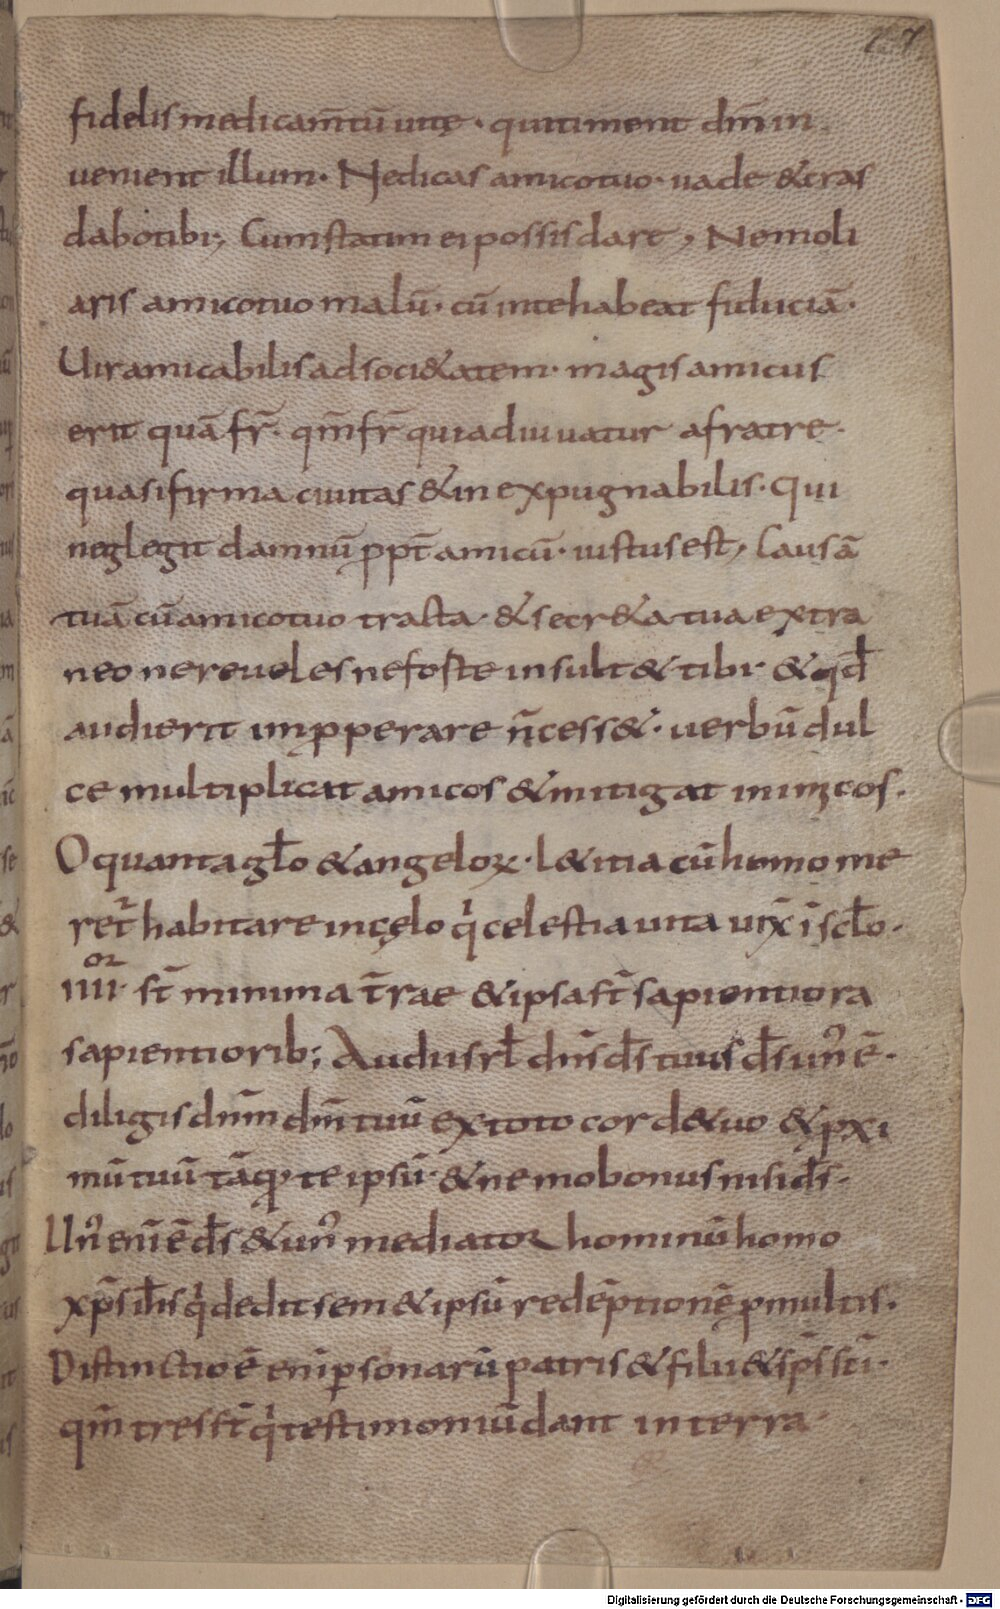 fidelis medicam̄tū uitę · qui timent dm̄ in
uenient illum · Ne dicas amico tuo · uade & cras
dabo tibi ; Cum statim ei possis dare , Ne moli
aris amico tuo malū · cū in te habeat fiduciā ·
Uir amicabilis ad soci&atem · magis amicus
erit quā fr̄ · qm̄ fr̄ qui adiuuatur a fratre ·
quasi firma ciuitas & inexpugnabilis · qui
neglegit damnū ꝓpt̄ amicū · iustus est , Causā
tuā cū amico tuo tracta · & secr&a tua extra
neo ne reueles ne foste insult& tibi · & qd̄
audierit imꝓperare n̄ cess& · uerbū dul
ce multiplicat amicos & mitigat inimicos ·
O quanta gło & angeloꝝ · l&itia cū homo me
ret̄ habitare in cęlo q̇ celestia uita uix̄ ī scło ·
IIII or · st̄ minima t̄rae & ipsa st̄ sapientiora
sapientiorib ; Audi isrł dn̄s ds̄ tuus ds̄ un᾿ ē ·
diligis dnm̄ dm̄ tuū ex toto corde tuo & pxi
mū tuū tāq te ipsū · & nemo bonus nisi ds̄ ·
Un᾿ enī ē ds̄ & un᾿ mediator hominū homo
xp̄s ih̄s q̇ dedit sem& ipsū redēptionē ꝓ multis ·
Distinctio ē enī ꝑsonarū patris & filii & sp̄s sc̄i ·
qm̄ tres st̄ q̇ testimoniū dant in terra ·
Digitalisierung gefördert durch die Deutsche Forschungsgemeinschaft - DFG